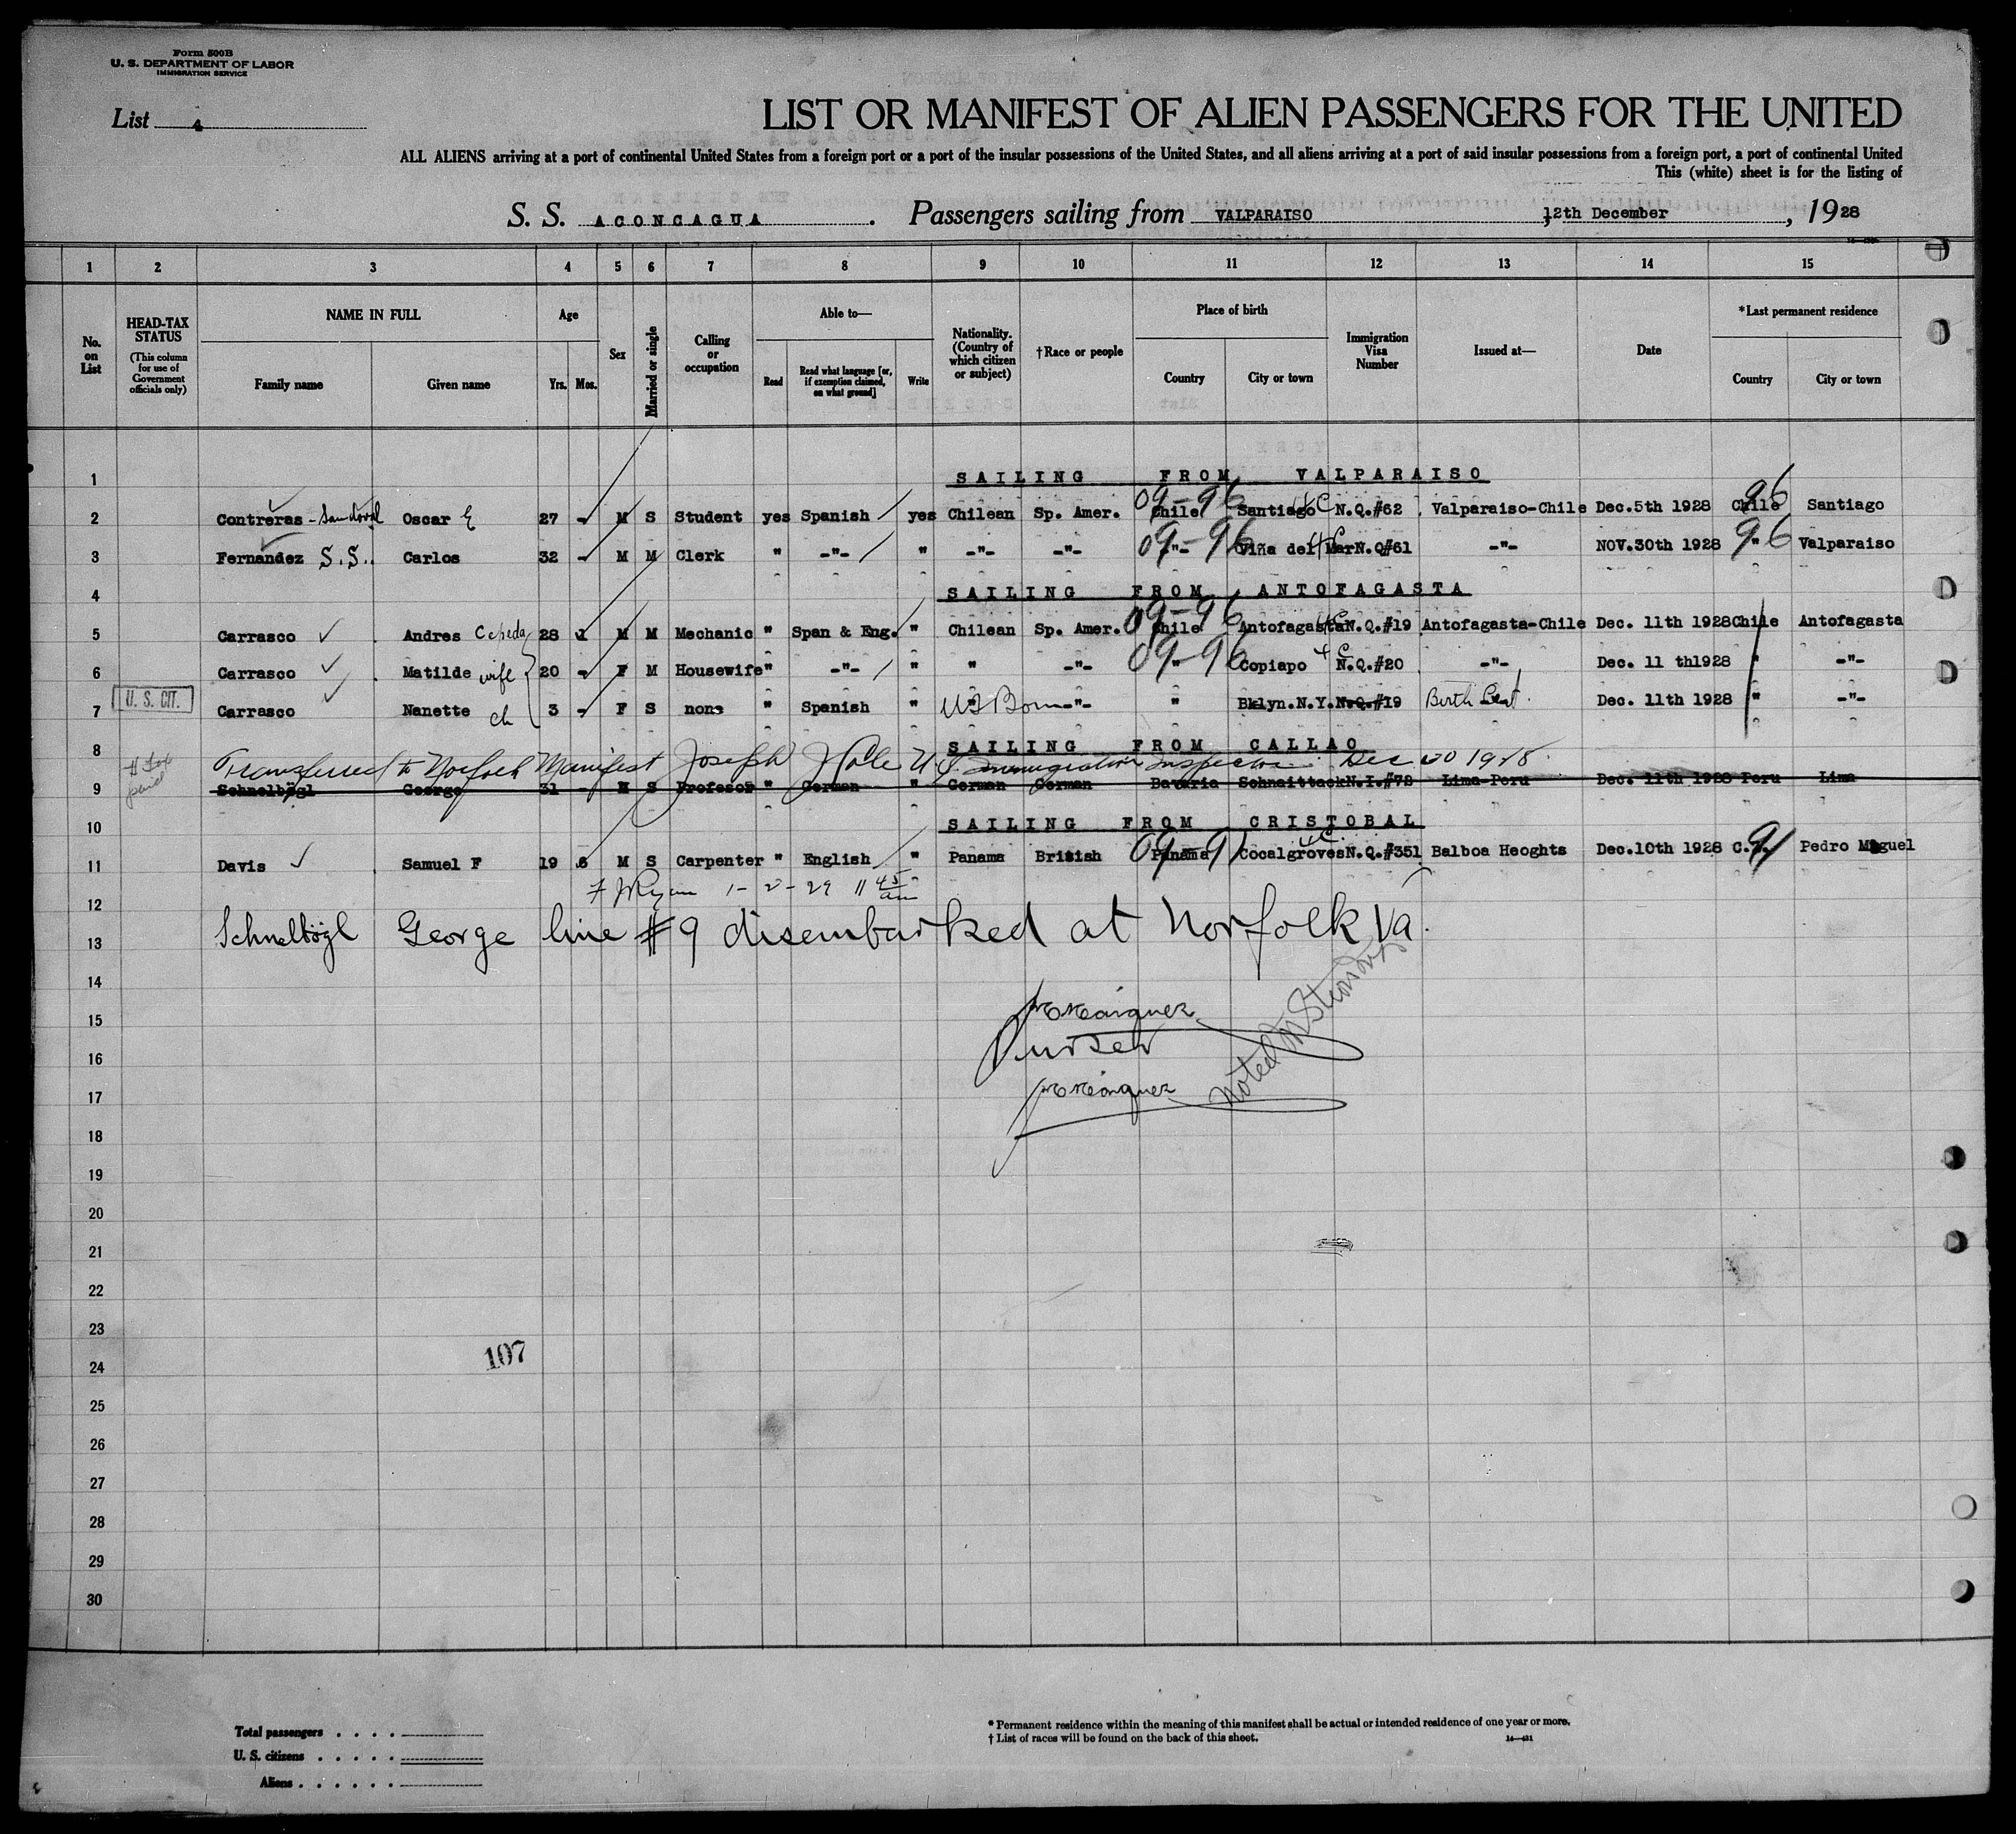 Form 500B
U. S. DEPARTMENT OF LABOR
IMMIGRATION SERVICE
List 4
LIST OR MANIFEST OF ALIEN PASSENGERS FOR THE UNITED
ALL ALIENS arriving at a port of continental United States from a foreign port or a port of the insular possessions of the United States, and all aliens arriving at a port of said insular possessions from a foreign port, a port of continental United
This (white) sheet is for the listing of
S. S. ACONCAGUA . Passengers sailing from VALPARAISO 12th December , 1928
1 2 3 4 5 6 7 8 9 10 11 12 13 14 15
No. on List
HEAD-TAX STATUS (This column for use of Government officials only)
NAME IN FULL Family name Given name
Age Yrs. Mos.
Sex
Married or single
Calling or occupation
Able to— Read Read what language [or, if exemption claimed, on what ground] Write
Nationality. (Country of which citizen or subject)
†Race or people
Place of birth Country City or town
Immigration Visa Number
Issued at—
Date
*Last permanent residence Country City or town
1 SAILING FROM VALPARAISO
2 Contreras - Sandoval Oscar E 27 - M S Student yes Spanish yes Chilean Sp. Amer. Chile 09-96 Santiago N.Q.#62 Valparaiso-Chile Dec.5th 1928 Chile 96 Santiago
3 Fernandez S.S. Carlos 32 - M M Clerk " -"- " -"- -"- -"- 09-96 Viña del Mar N.Q#61 -"- NOV.30th 1928 " 96 Valparaiso
4 SAILING FROM ANTOFAGASTA
5 Carrasco Andres Cepeda 28 1 M M Mechanic " Span & Eng. " Chilean Sp. Amer. Chile 09-96 Antofagasta N.Q.#19 Antofagasta-Chile Dec. 11th 1928 Chile Antofagasta
6 Carrasco Matilde wife 20 - F M Housewife " -"- " " -"- " 09-96 Copiapo N.Q.#20 -"- Dec. 11 th1928 " -"-
U. S. CIT.
7 Carrasco Nanette ch 3 - F S none " Spanish " US Born -"- " Bklyn.N.Y. N.Q.#19 Birth Cert. Dec. 11th 1928 " -"-
8 SAILING FROM CALLAO
H Tax paid
Transferred to Norfolk Manifest Joseph J Hale U S. Immigration Inspector Dec 30 1928
9 Schnelbögl George 31 - M S Profesor " German " German German Bavaria Schnaittack N.I.#78 Lima-Peru Dec. 11th 1928 Peru Lima
10 SAILING FROM CRISTOBAL
11 Davis Samuel F 19 6 M S Carpenter " English " Panama British Panama 09-91 Cocalgroves N.Q.#351 Balboa Heoghts Dec.10th 1928 C.Z. Pedro Miguel
F J Ryan 1-2-29 11 45 am
12
13 Schnelbögl George line #9 disembarked at Norfolk Va.
14
15 Marquez
16 Purser
17 Marquez
Noted
18
19
20
21
22
23
107
24
25
26
27
28
29
30
Total passengers . . . .
U. S. citizens . . . . .
Aliens . . . . . .
* Permanent residence within the meaning of this manifest shall be actual or intended residence of one year or more.
† List of races will be found on the back of this sheet.
14—431